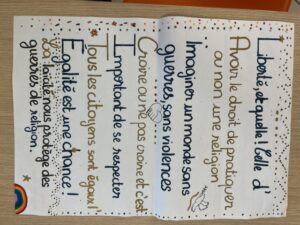 Liberté, et quelle ! d'
Avoir le droit de pratiquer
ou non une religion
Imaginer un monde sans
guerres, sans violences
Croire ou ne pas croire et c'est
Important de se respecter
Tous les citoyens sont égaux !
Egalité est une chance !
La laïcité nous protège des
guerres de religion.